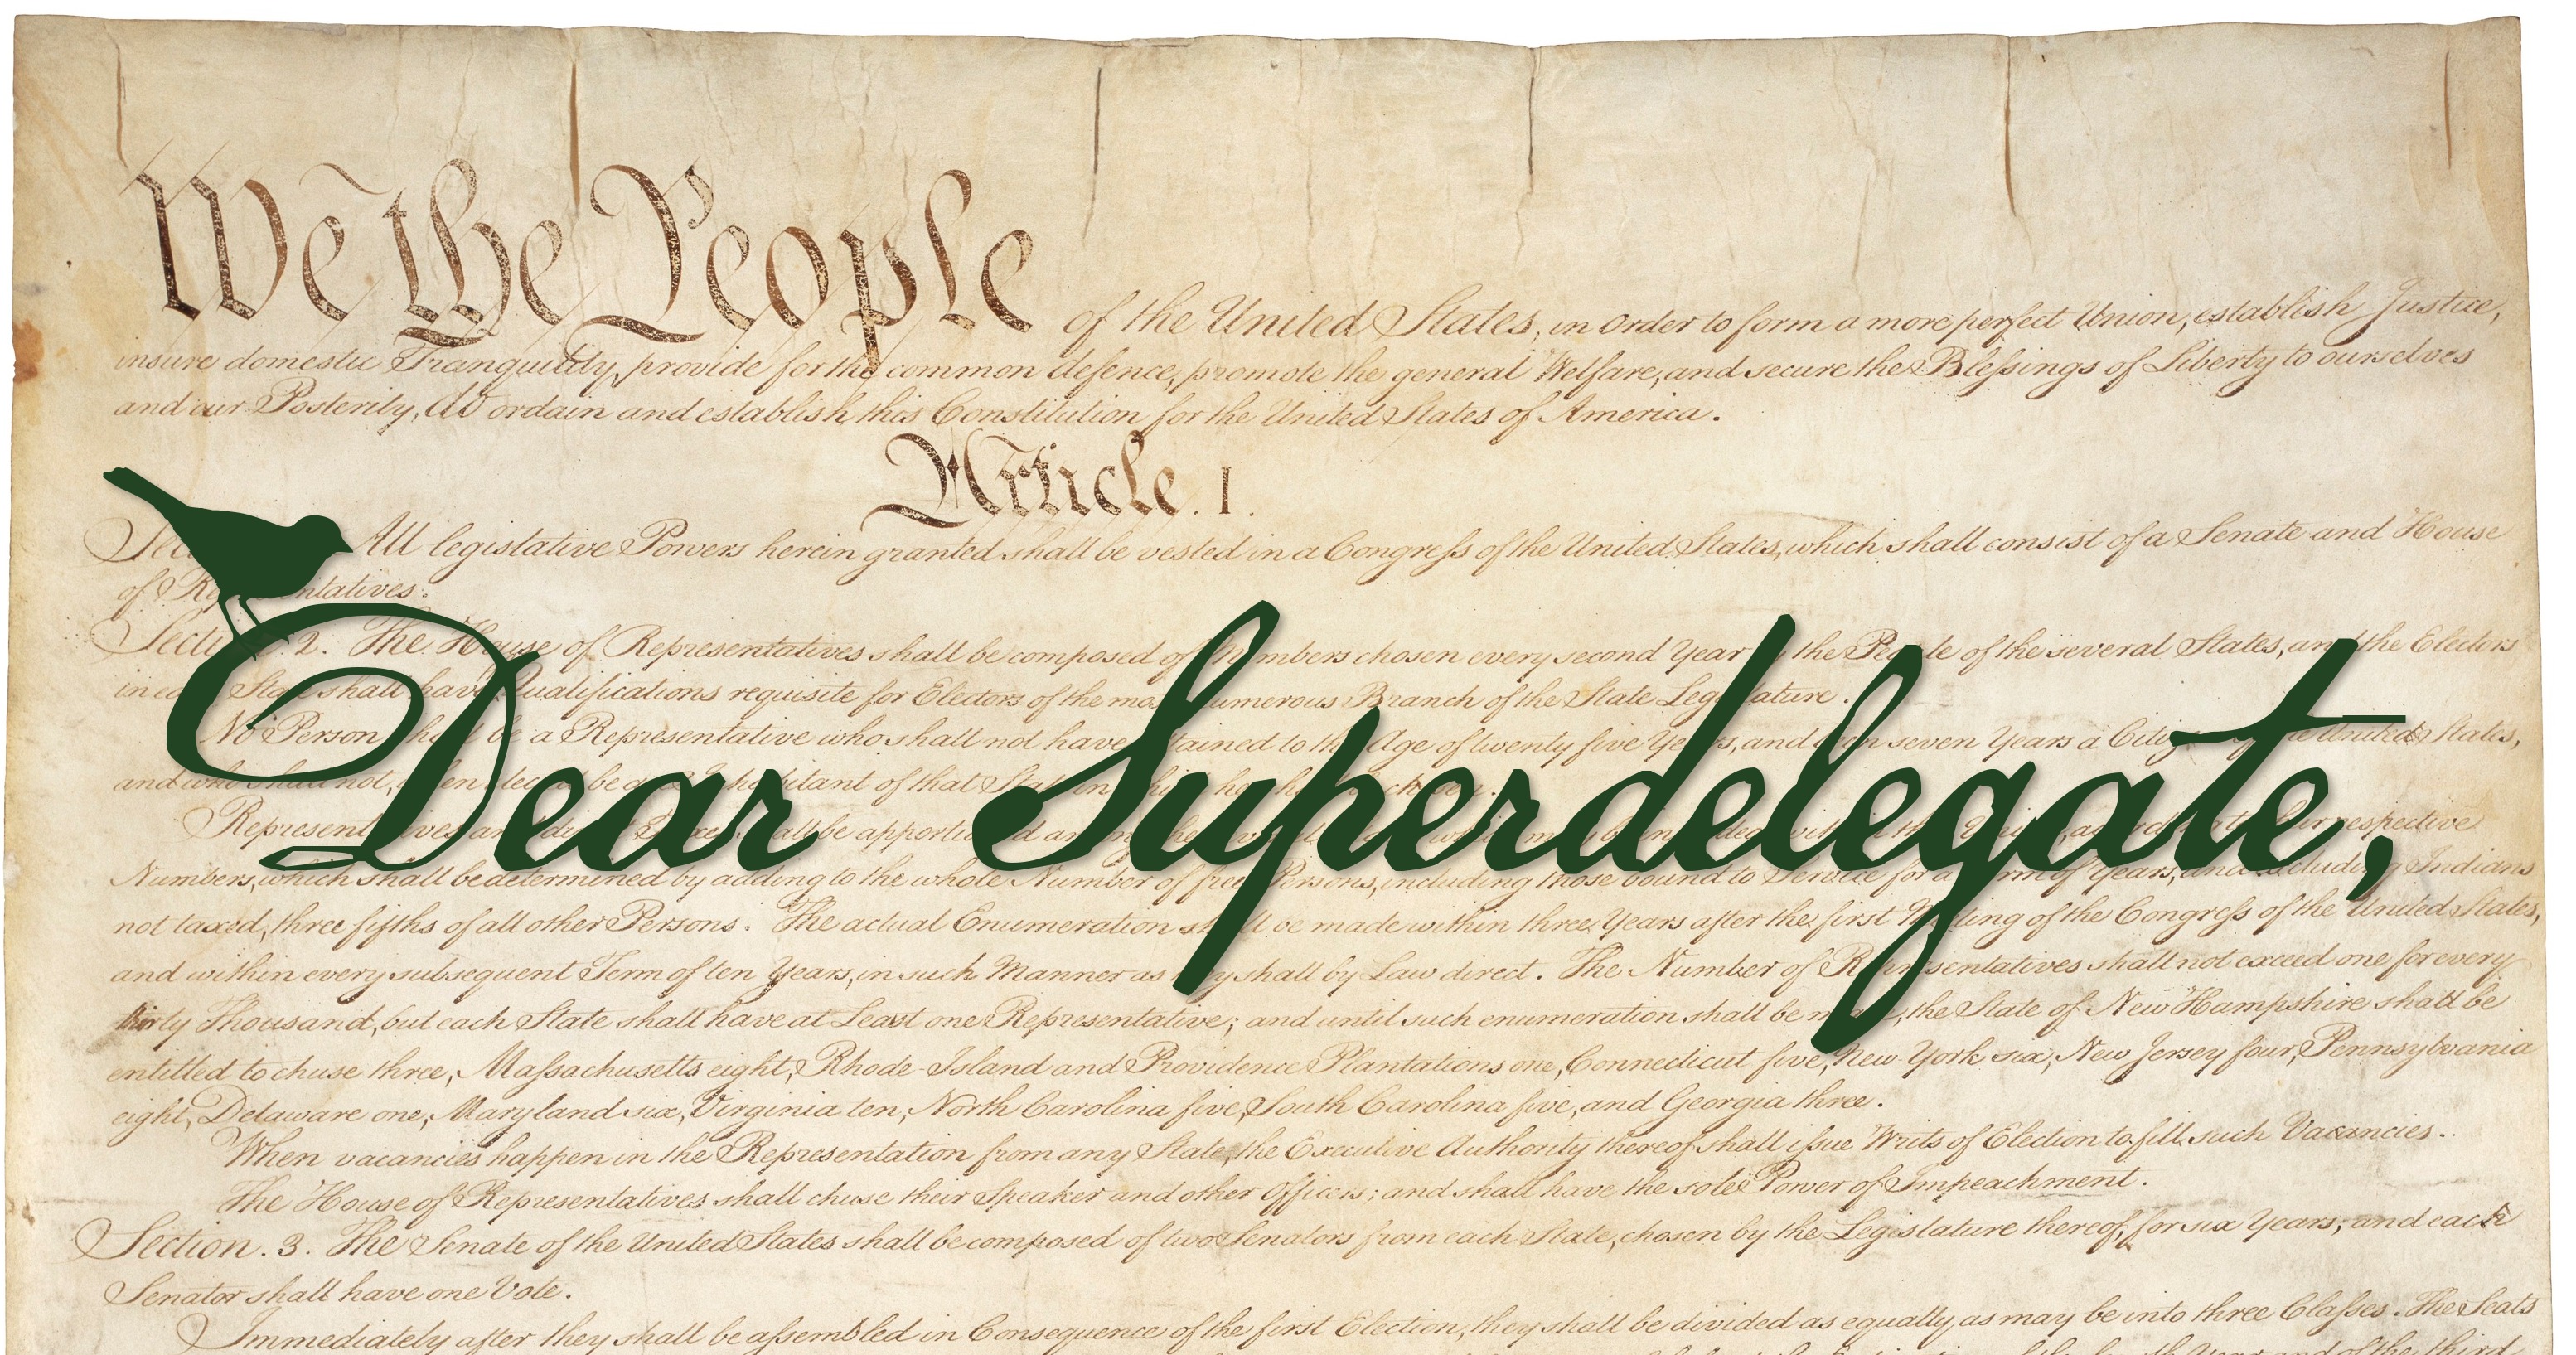 We the People of the United States, in Order to form a more perfect Union, establish Justice,
insure domestic Tranquility, provide for the common defence, promote the general Welfare, and secure the Blessings of Liberty to ourselves
and our Posterity, do ordain and establish this Constitution for the United States of America.
Article. I.
All legislative Powers herein granted shall be vested in a Congress of the United States, which shall consist of a Senate and House
of
2. The House of Representatives shall be composed of chosen every second Year the of the several States, and the Electors
in State shall have Qualifications requisite for Electors of the Branch of the State
No Person be a Representative who shall not have to the Age of twenty five and seven Years a United States,
and who not, be of that
Dear Superdelegate,
be respective
Numbers, which shall be determined by adding to the whole Number of free Persons, including those bound to Service for a of Years, and Indians
not taxed, three fifths of all other Persons. The actual Enumeration be made within three Years after the first of the Congress of the United States,
and within every subsequent Term of ten Years, in such Manner as shall by Law direct. The Number of shall not exceed one for every
thirty Thousand, but each State shall have at Least one Representative; and until such enumeration shall be the State of New Hampshire shall be
entitled to chuse three, Massachusetts eight, Rhode-Island and Providence Plantations one, Connecticut five, New-York six, New Jersey four, Pennsylvania
eight, Delaware one, Maryland six, Virginia ten, North Carolina five, South Carolina five, and Georgia three.
When vacancies happen in the Representation from any State, the Executive Authority thereof shall issue Writs of Election to fill such Vacancies.
The House of Representatives shall chuse their Speaker and other Officers; and shall have the sole Power of Impeachment.
Section. 3. The Senate of the United States shall be composed of two Senators from each State, chosen by the Legislature thereof, for six Years; and each
Senator shall have one Vote.
Immediately after they shall be assembled in Consequence of the first Election, they shall be divided as equally as may be into three Classes. The Seats